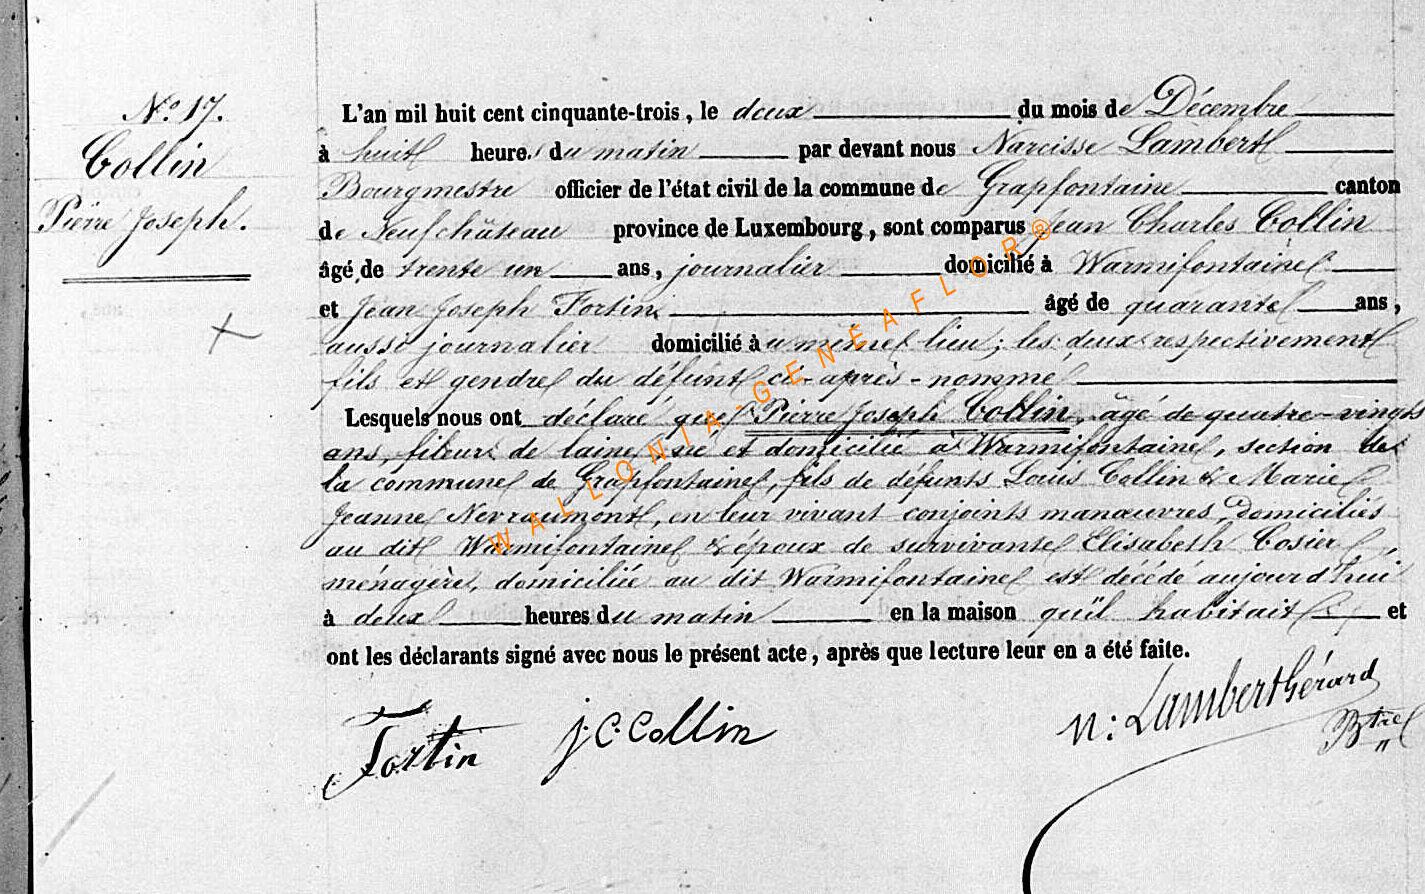 N.º 17.
Collin
Pierre Joseph.
L'an mil huit cent cinquante-trois, le deux du mois de Décembre
à huit heures du matin par devant nous Narcisse Lambert
Bourgmestre officier de l'état civil de la commune de Grapfontaine canton
de Neufchâteau province de Luxembourg, sont comparus Jean Charles Collin
âgé de trente un ans, journalier domicilié à Warmifontaine
et Jean Joseph Fortin âgé de quarante ans,
aussi journalier domicilié au même lieu; les deux respectivement
fils et gendre du défunt ci-après-nommé
Lesquels nous ont déclaré que Pierre Joseph Collin, âgé de quatre-vingts
ans, fileur de laine, né et domicilié à Warmifontaine, section de
la commune de Grapfontaine, fils de défunts Louis Collin & Marie
Jeanne Nevraumont, en leur vivant conjoints manœuvres, domiciliés
au dit Warmifontaine & époux de survivante Elisabeth Cosier,
ménagère, domiciliée au dit Warmifontaine est décédé aujourd'hui
à deux heures du matin en la maison qu'il habitait et
ont les déclarants signé avec nous le présent acte, après que lecture leur en a été faite.
Fortin J. C. Collin N: Lambert Gérard
Btre
WALLONIA-GENEAFLOR®